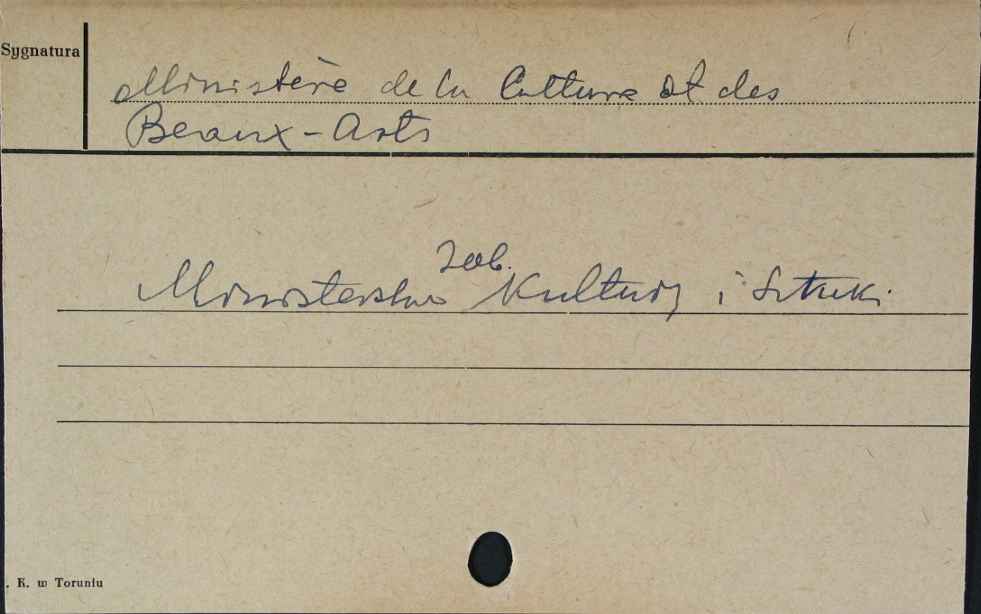 Sygnatura
Ministère de la Culture et des
Beaux-Arts
zob.
Ministerstwo Kultury i Sztuki.
. K. w Toruniu